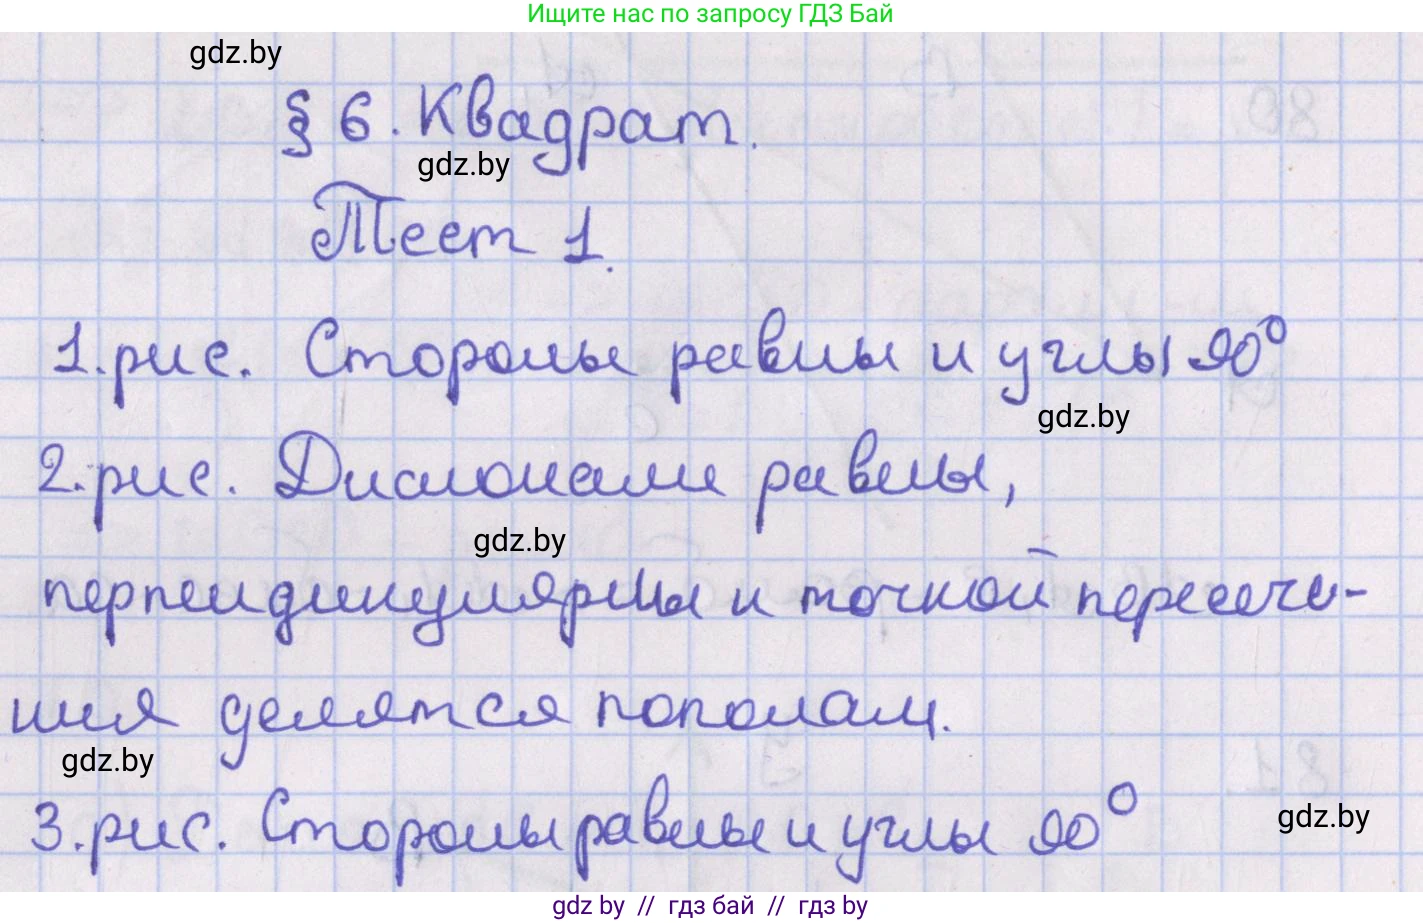 Ищите нас по запросу ГДЗ Бай
gdz.by
§ 6. Квадрат.
gdz.by
Тест 1.
1. рис. Стороны равны и углы 90°
gdz.by
2. рис. Диагонали равны,
gdz.by
перпендикулярны и точкой пересече-
ния делятся пополам.
gdz.by
3. рис. Стороны равны и углы 90°
gdz.by
gdz by // гдз бай // гдз by